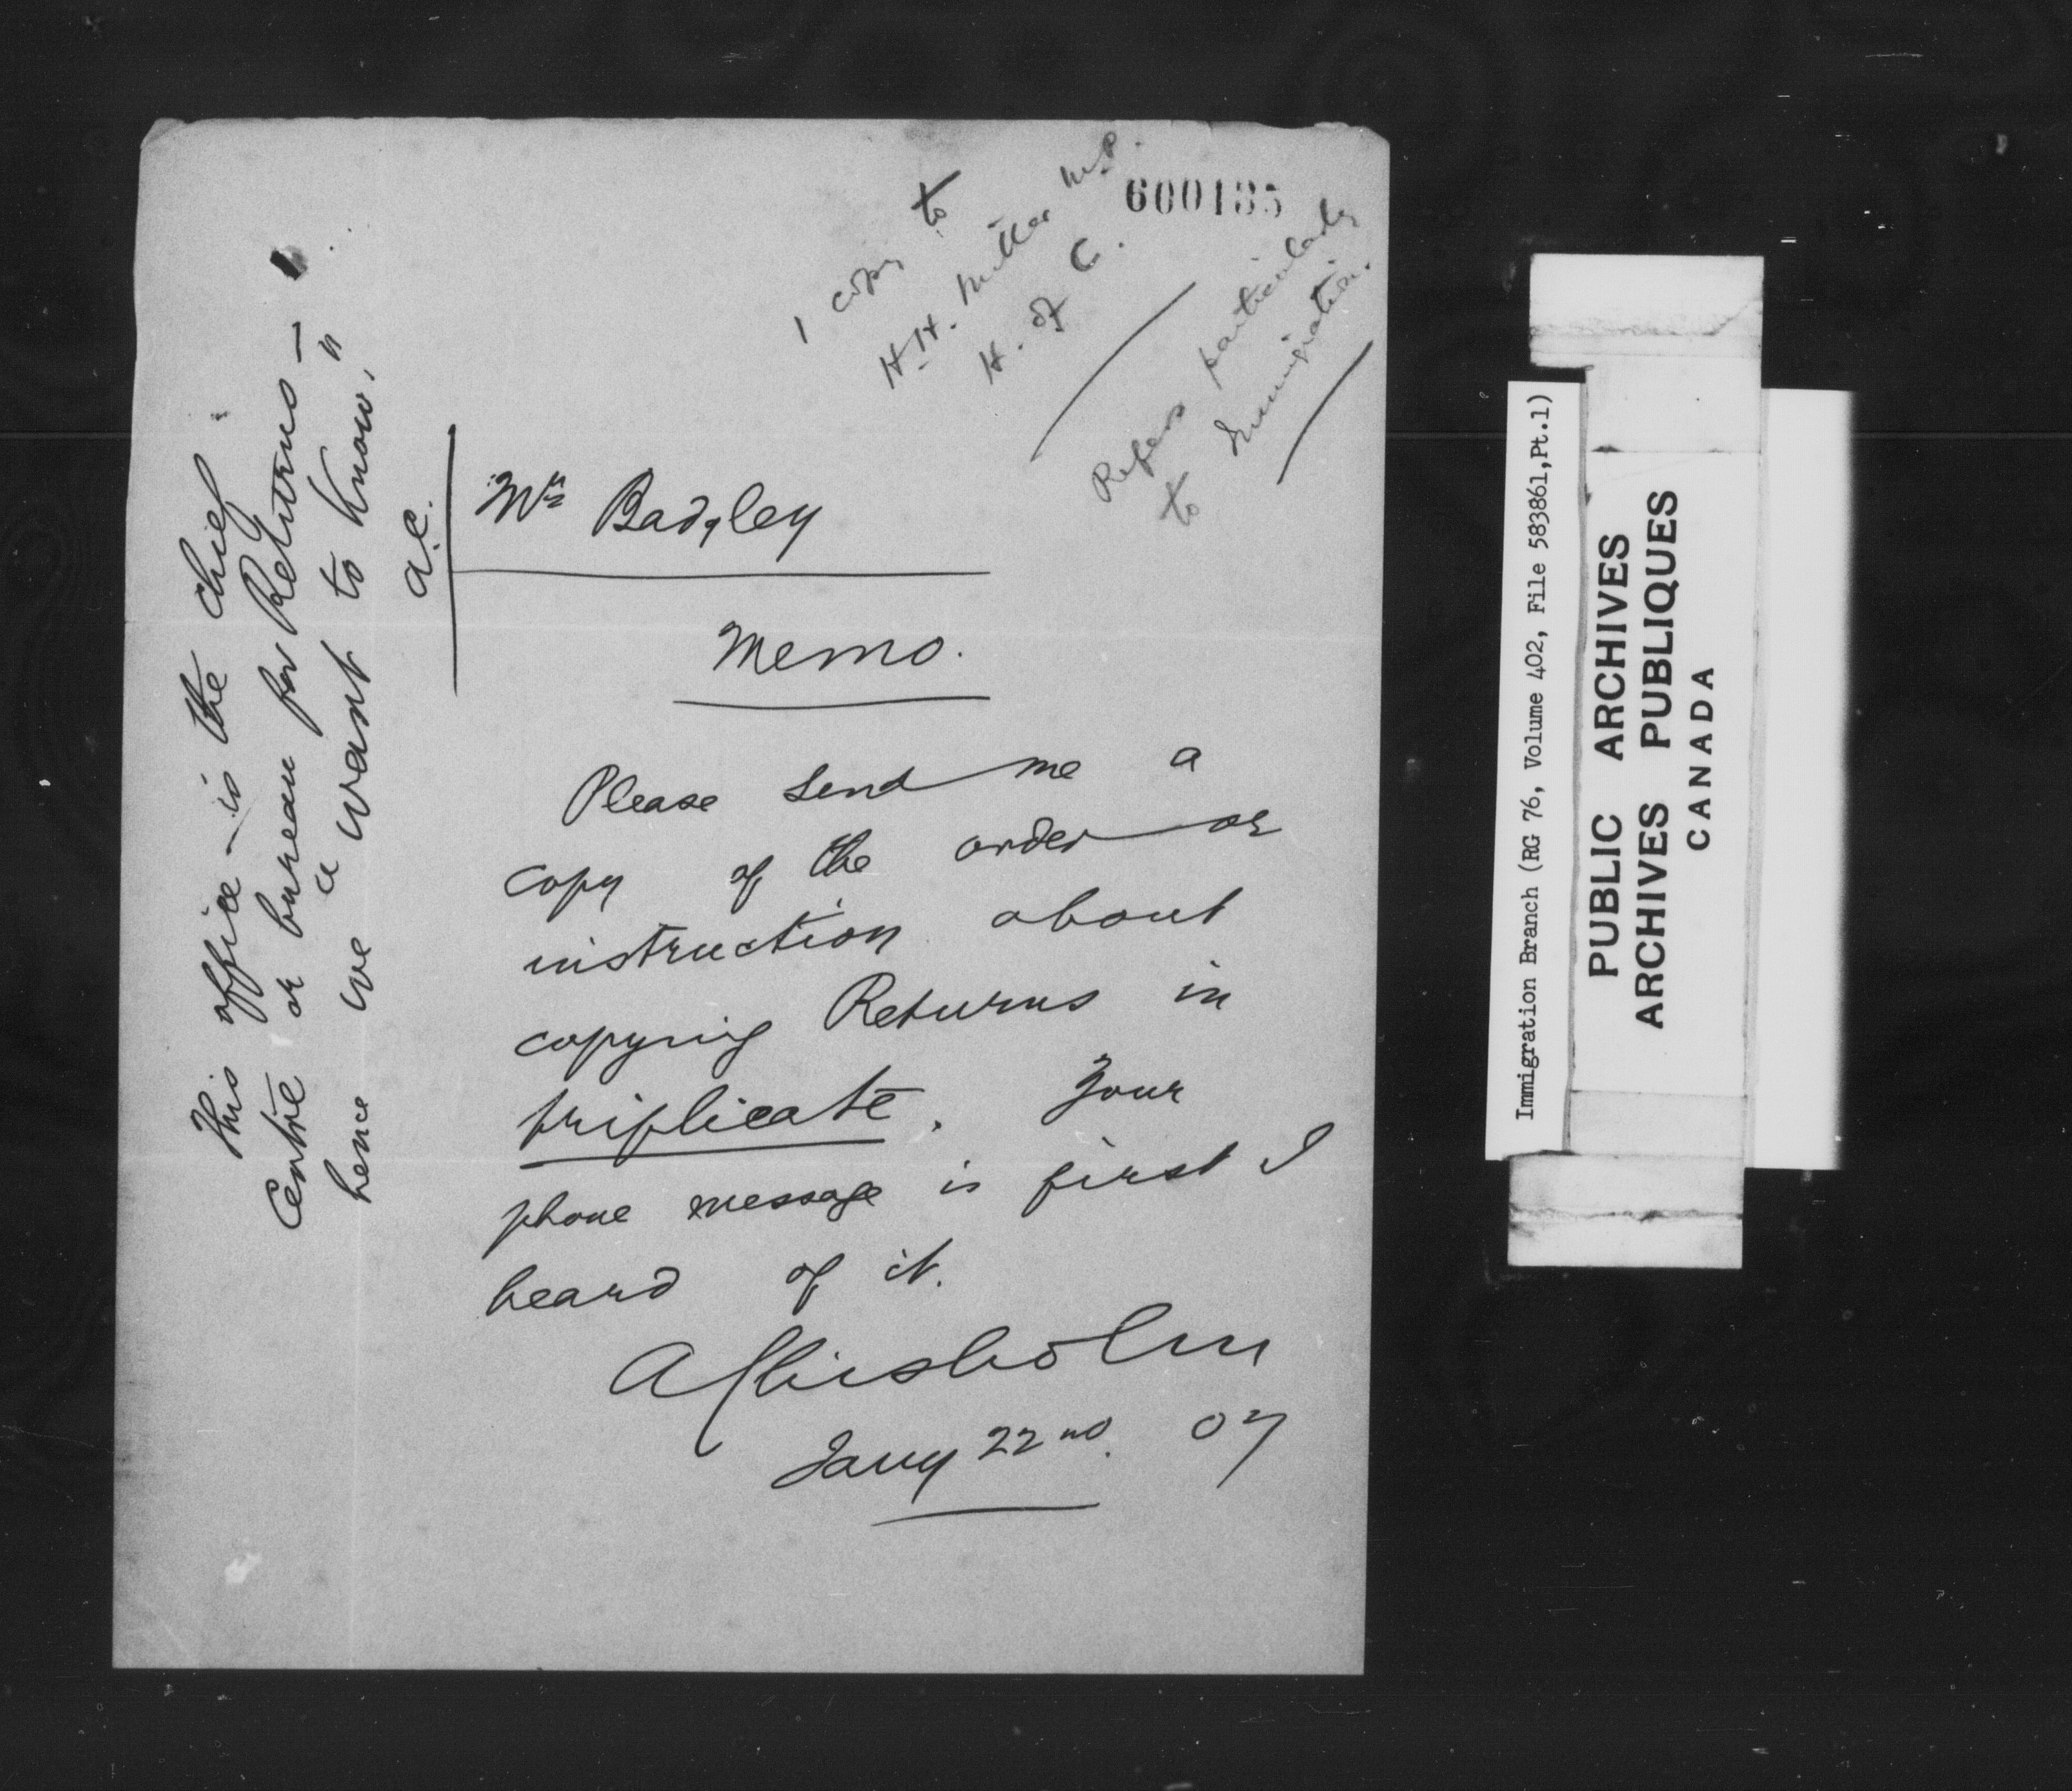 600135
1 copy to
H.H. Miller M.P.
H. of C.
Refers particularly
to Immigration.
Mr Badgley
Memo.
Please send me a
copy of the order or
instruction about
copying Returns in
triplicate. Your
phone message is first I
heard of it.
AChisholm
Jany 22nd. 07
This office – is the chief
Centre or bureau for Returns –
hence we "want to know,"
a.c.
Immigration Branch (RG 76, Volume 402, File 583861,Pt.1)
PUBLIC ARCHIVES
ARCHIVES PUBLIQUES
CANADA